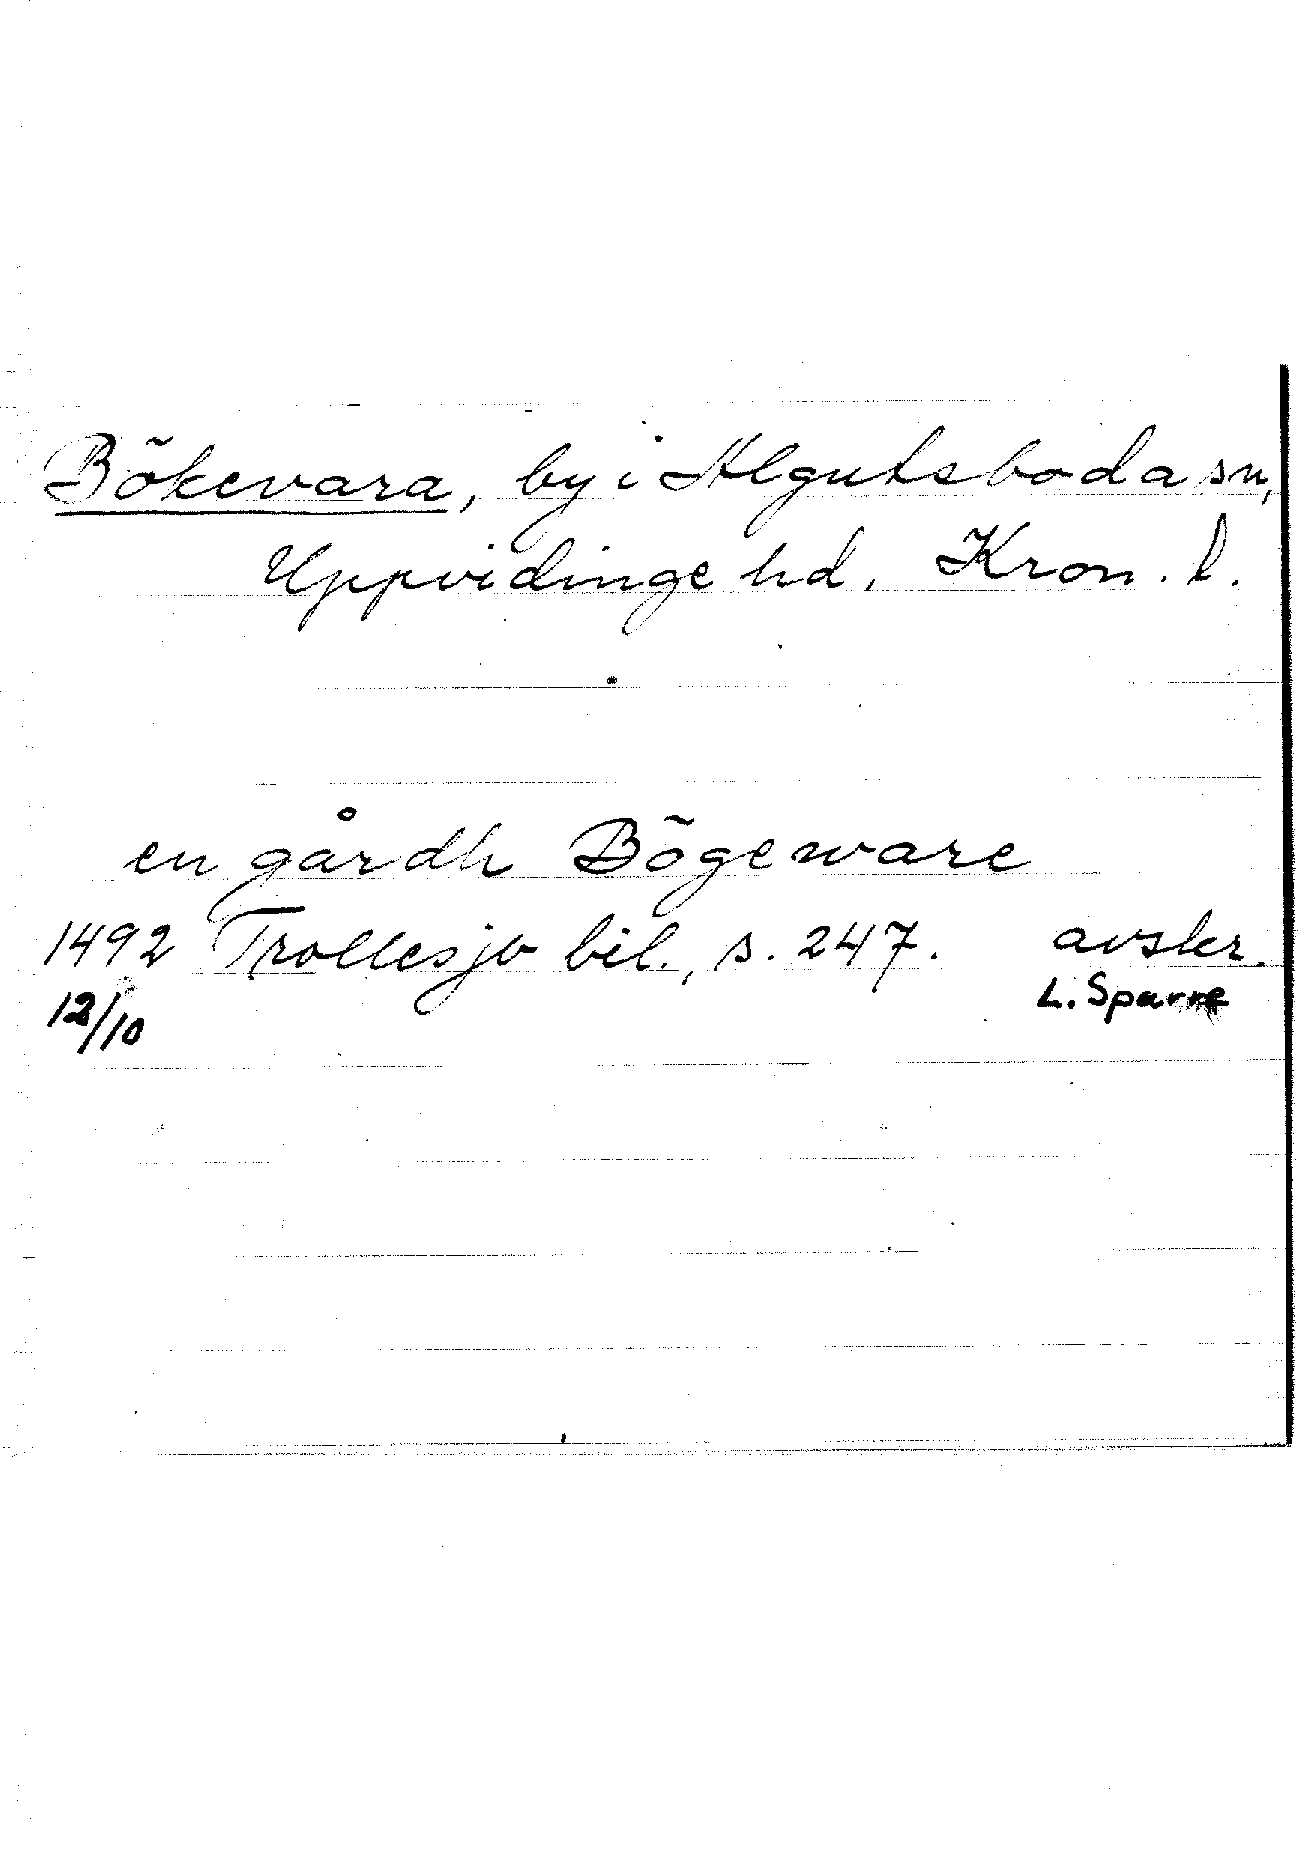 Bökevara, by i Algutsboda sn,
Uppvidinge hd. Kron. l.
en gårdh Bögeware
1492 Trollesjb bil., s. 247. avskr.
12/10 L. Sparre